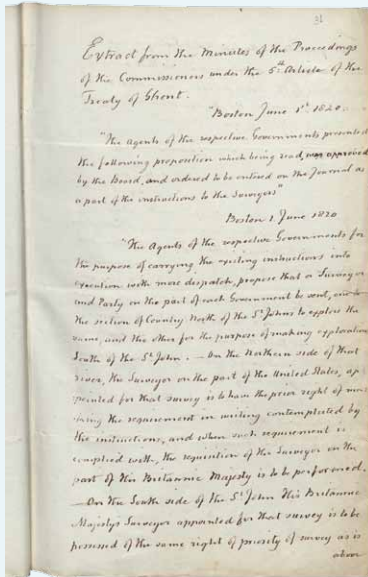 31
Extract from the Minutes of the Proceedings
of the Commissioners under the 5th Article of the
Treaty of Ghent.
"Boston June 1st 1820.
"The agents of the respective Governments presented
the following proposition which being read, was approved
by the Board, and ordered to be entered on the Journal as
a part of the instructions to the Surveyors"
Boston 1 June 1820
"The Agents of the respective Governments for
the purpose of carrying the existing instructions into
execution with more despatch, propose that a Surveyor
and Party on the part of each Government be sent, one to
the section of Country North of the St Johns to explore the
same, and the other for the purpose of making exploration
South of the St John. — On the Northern side of that
river, the Surveyor on the part of the United States, ap
pointed for that survey is to have the prior right of
the requirement in writing contemplated by
the instructions, and when such requirement is
complied with, the requisition of the Surveyor on the
part of His Britannic Majesty is to be performed.
— On the South side of the St John His Britannic
Majesty's Surveyor appointed for that survey is to be
possessed of the same right of priority of survey as is
above